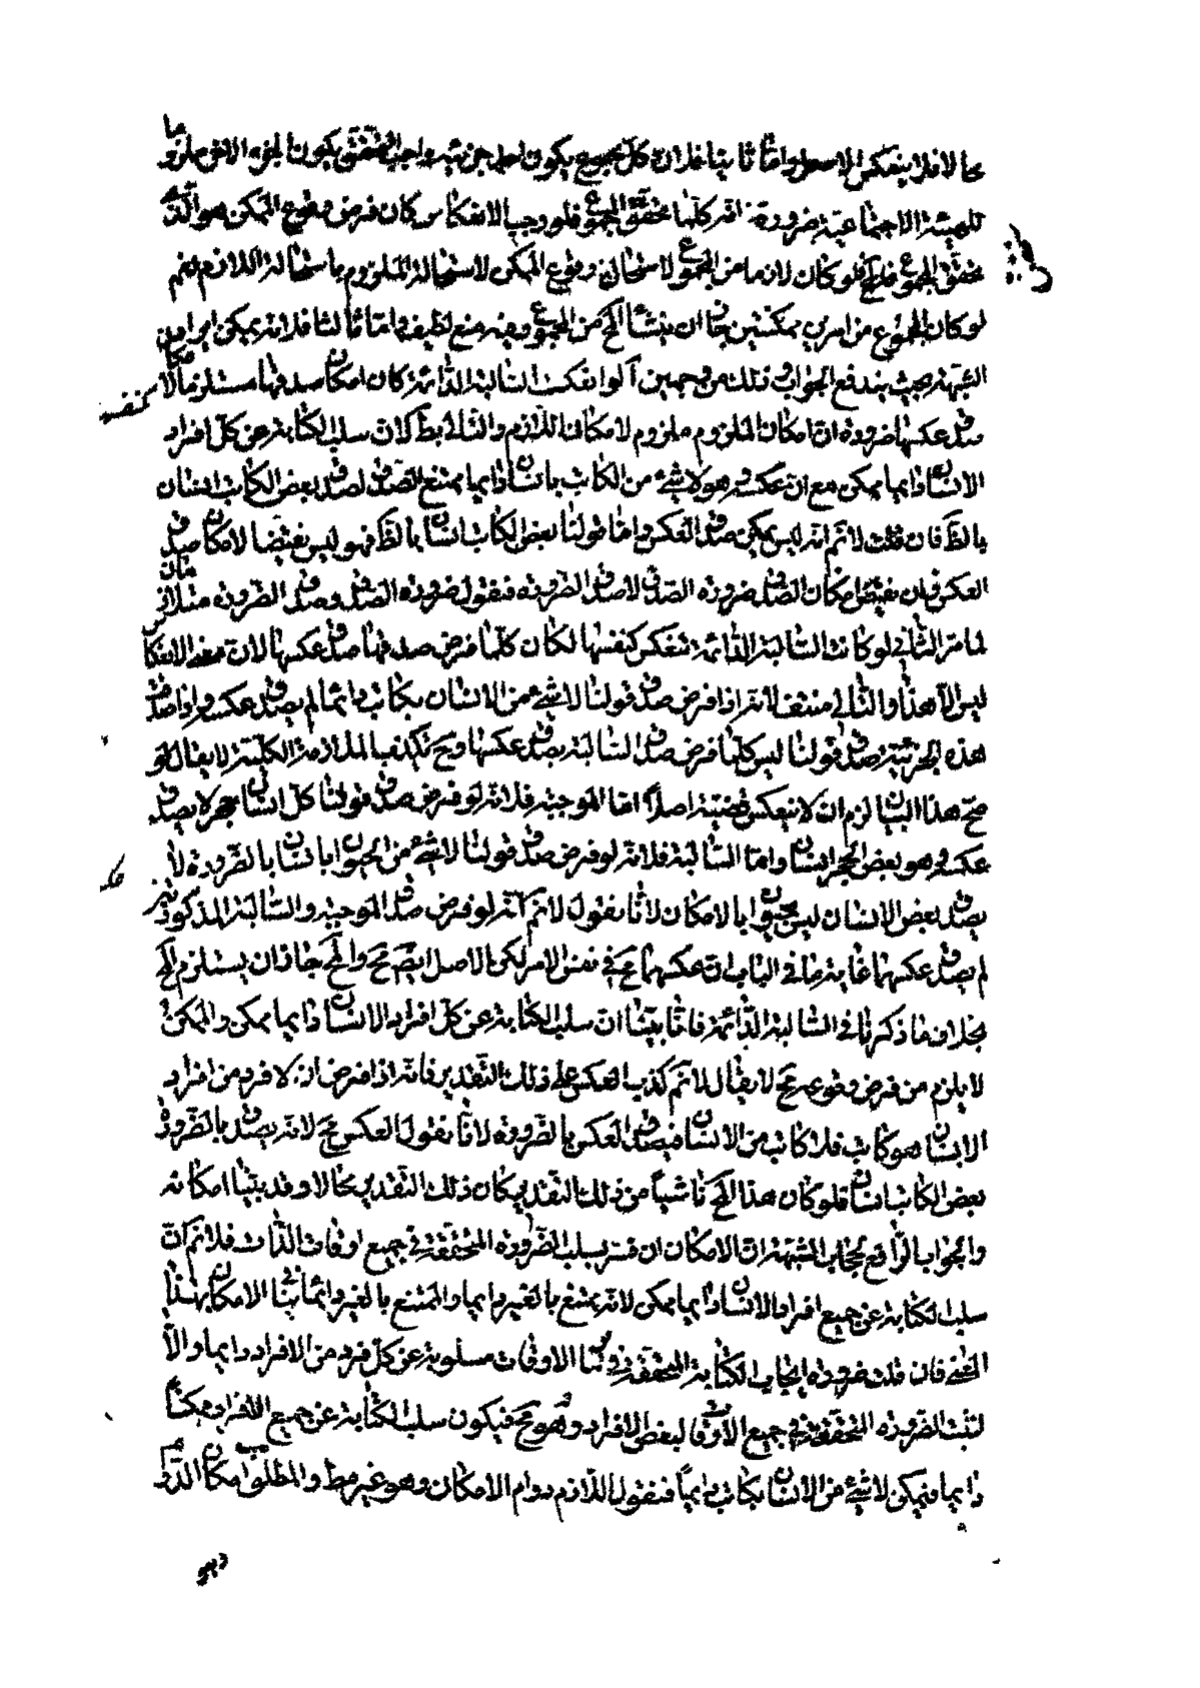 محالا فلا ينعكس لا محالة واما ثانيا فلان كل مجموع يكون احد جزئيه واجب التحقق يكون الجزء الاخر ملزوما
للهيئة الاجتماعية ضرورة انه كلما تحقق تحقق المجموع فلو وجب الانعكاس كان فرض وقوع الممكن هو الذى
تحقق المجموع فلو كان لازما من المجموع لاستحال وقوع الممكن لاستحالة الملزوم باستحالة اللازم نعم
لو كان المجموع من امرين ممكنين جاز ان ينشأ المح من المجموع وفيه منع لطيف واما ثالثا فلانه يمكن ايراد
الشبهة بحيث يندفع الجواب وذلك من وجهين آ لو انعكست السالبة الدائمة كنفسها كان امكان صدقها مستلزما لامكان
صدق عكسها ضرورة ان امكان الملزوم ملزوم لامكان اللازم والتالى بط لان سلب الكتابة عن كل افراد
الانسان دايما ممكن مع ان عكسه وهو لا شئ من الكاتب بانسان دايما ممتنع الصدق لصدق بعض الكاتب انسان
بالضرورة فان قلت لا نم انه ليس يمكن صدق العكس واما قولنا بعض الكاتب انسان بالضرورة فهو ليس نقيضا لامكان صدق
العكس فان نقيض امكان الصدق ضرورة الصدق لا صدق الضرورة فنقول ضرورة الصدق وصدق الضرورة متلازمان
لما مر الثانى لو كانت السالبة الدائمة تنعكس كنفسها لكان كلما فرض صدقها صدق عكسها لان معنى الانعكاس
ليس الا هذا والتالى منتف لانه اذا فرض صدق قولنا لا شئ من الانسان بكاتب دائما لم يصدق عكسه واذا صدق
هذه الجزئية صدق قولنا ليس كلما فرض صدق السالبة يصدق عكسها وح تكذب الملازمة الكلية لا يقال لو
صح هذا البيان لزم ان لا ينعكس قضية اصلا اما الموجبة فلانه لو فرض صدق قولنا كل انسان حجر لا يصدق
عكسه وهو بعض الحجر انسان واما السالبة فلانه لو فرض صدق قولنا لا شئ من الحيوان بانسان بالضرورة لا
يصدق بعض الانسان ليس بحيوان بالامكان لانا نقول لا نم انه لو فرض صدق الموجبة والسالبة المذكورتين
لم يصدق عكسهما غاية ما فى الباب ان عكسهما مح فى نفس الامر لكن الاصل ايضا مح والمح جاز ان يستلزم المح
بخلاف ما ذكرنا فى السالبة الدائمة فانا بينا ان سلب الكتابة عن كل افراد الانسان دايما ممكن والممكن
لا يلزم من فرض وقوعه مح لا يقال لا نم كذب العكس على ذلك التقدير فانه اذا فرض ان لا فرد من افراد
الانسان هو كاتب فلا كاتب من الانسان فيصدق العكس بالضرورة لانا نقول العكس مح لانه يصدق بالضرورة
بعض الكاتب انسان فلو كان هذا المح ناشيا من ذلك التقدير كان ذلك التقدير محالا وقد بينا امكانه
والجواب الواقع بحجاب الشبهة ان الامكان ان فسر بسلب الضرورة المتحققة فى جميع اوقات الذات فلا نم ان
سلب الكتابة عن جميع افراد الانسان دايما ممكن لانه ممتنع بالغير دايما والممتنع بالغير دائما ينافى الامكان بهذا
المعنى فان قلت ضرورة ايجاب الكتابة المتحققة فى وقتا الاوقات مسلوبة عن كل فرد من الافراد دايما والا
لثبت الضرورة المتحققة فى جميع الاوقات لبعض الافراد وهو مح فيكون سلب الكتابة عن جميع الافراد ممكنا
دايما فيمكن لا شئ من الانسان بكاتب دايما فنقول اللازم دوام الامكان وهو غير مط والمطلوب امكان الدوام
وهو